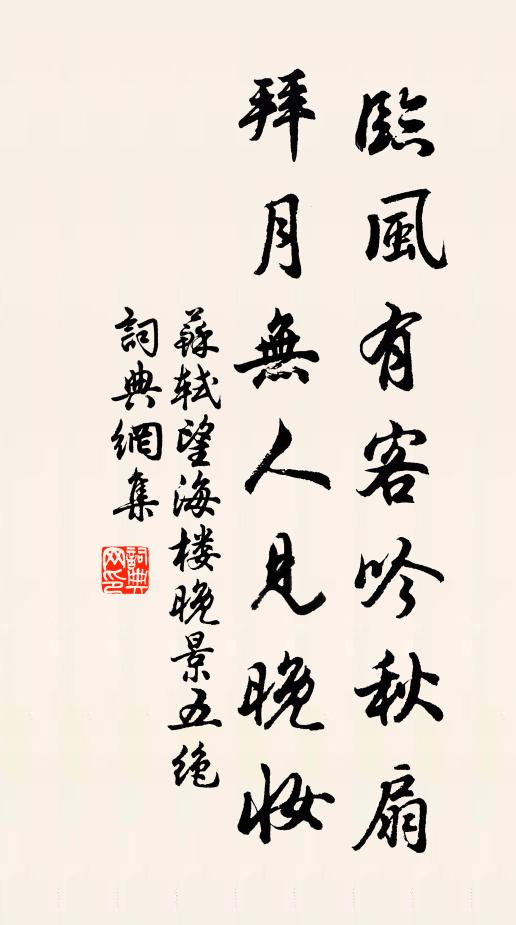 臨風有客吟秋扇
拜月無人見晚妝
蘇軾望海楼晚景五绝
詞典網集
詞典网印